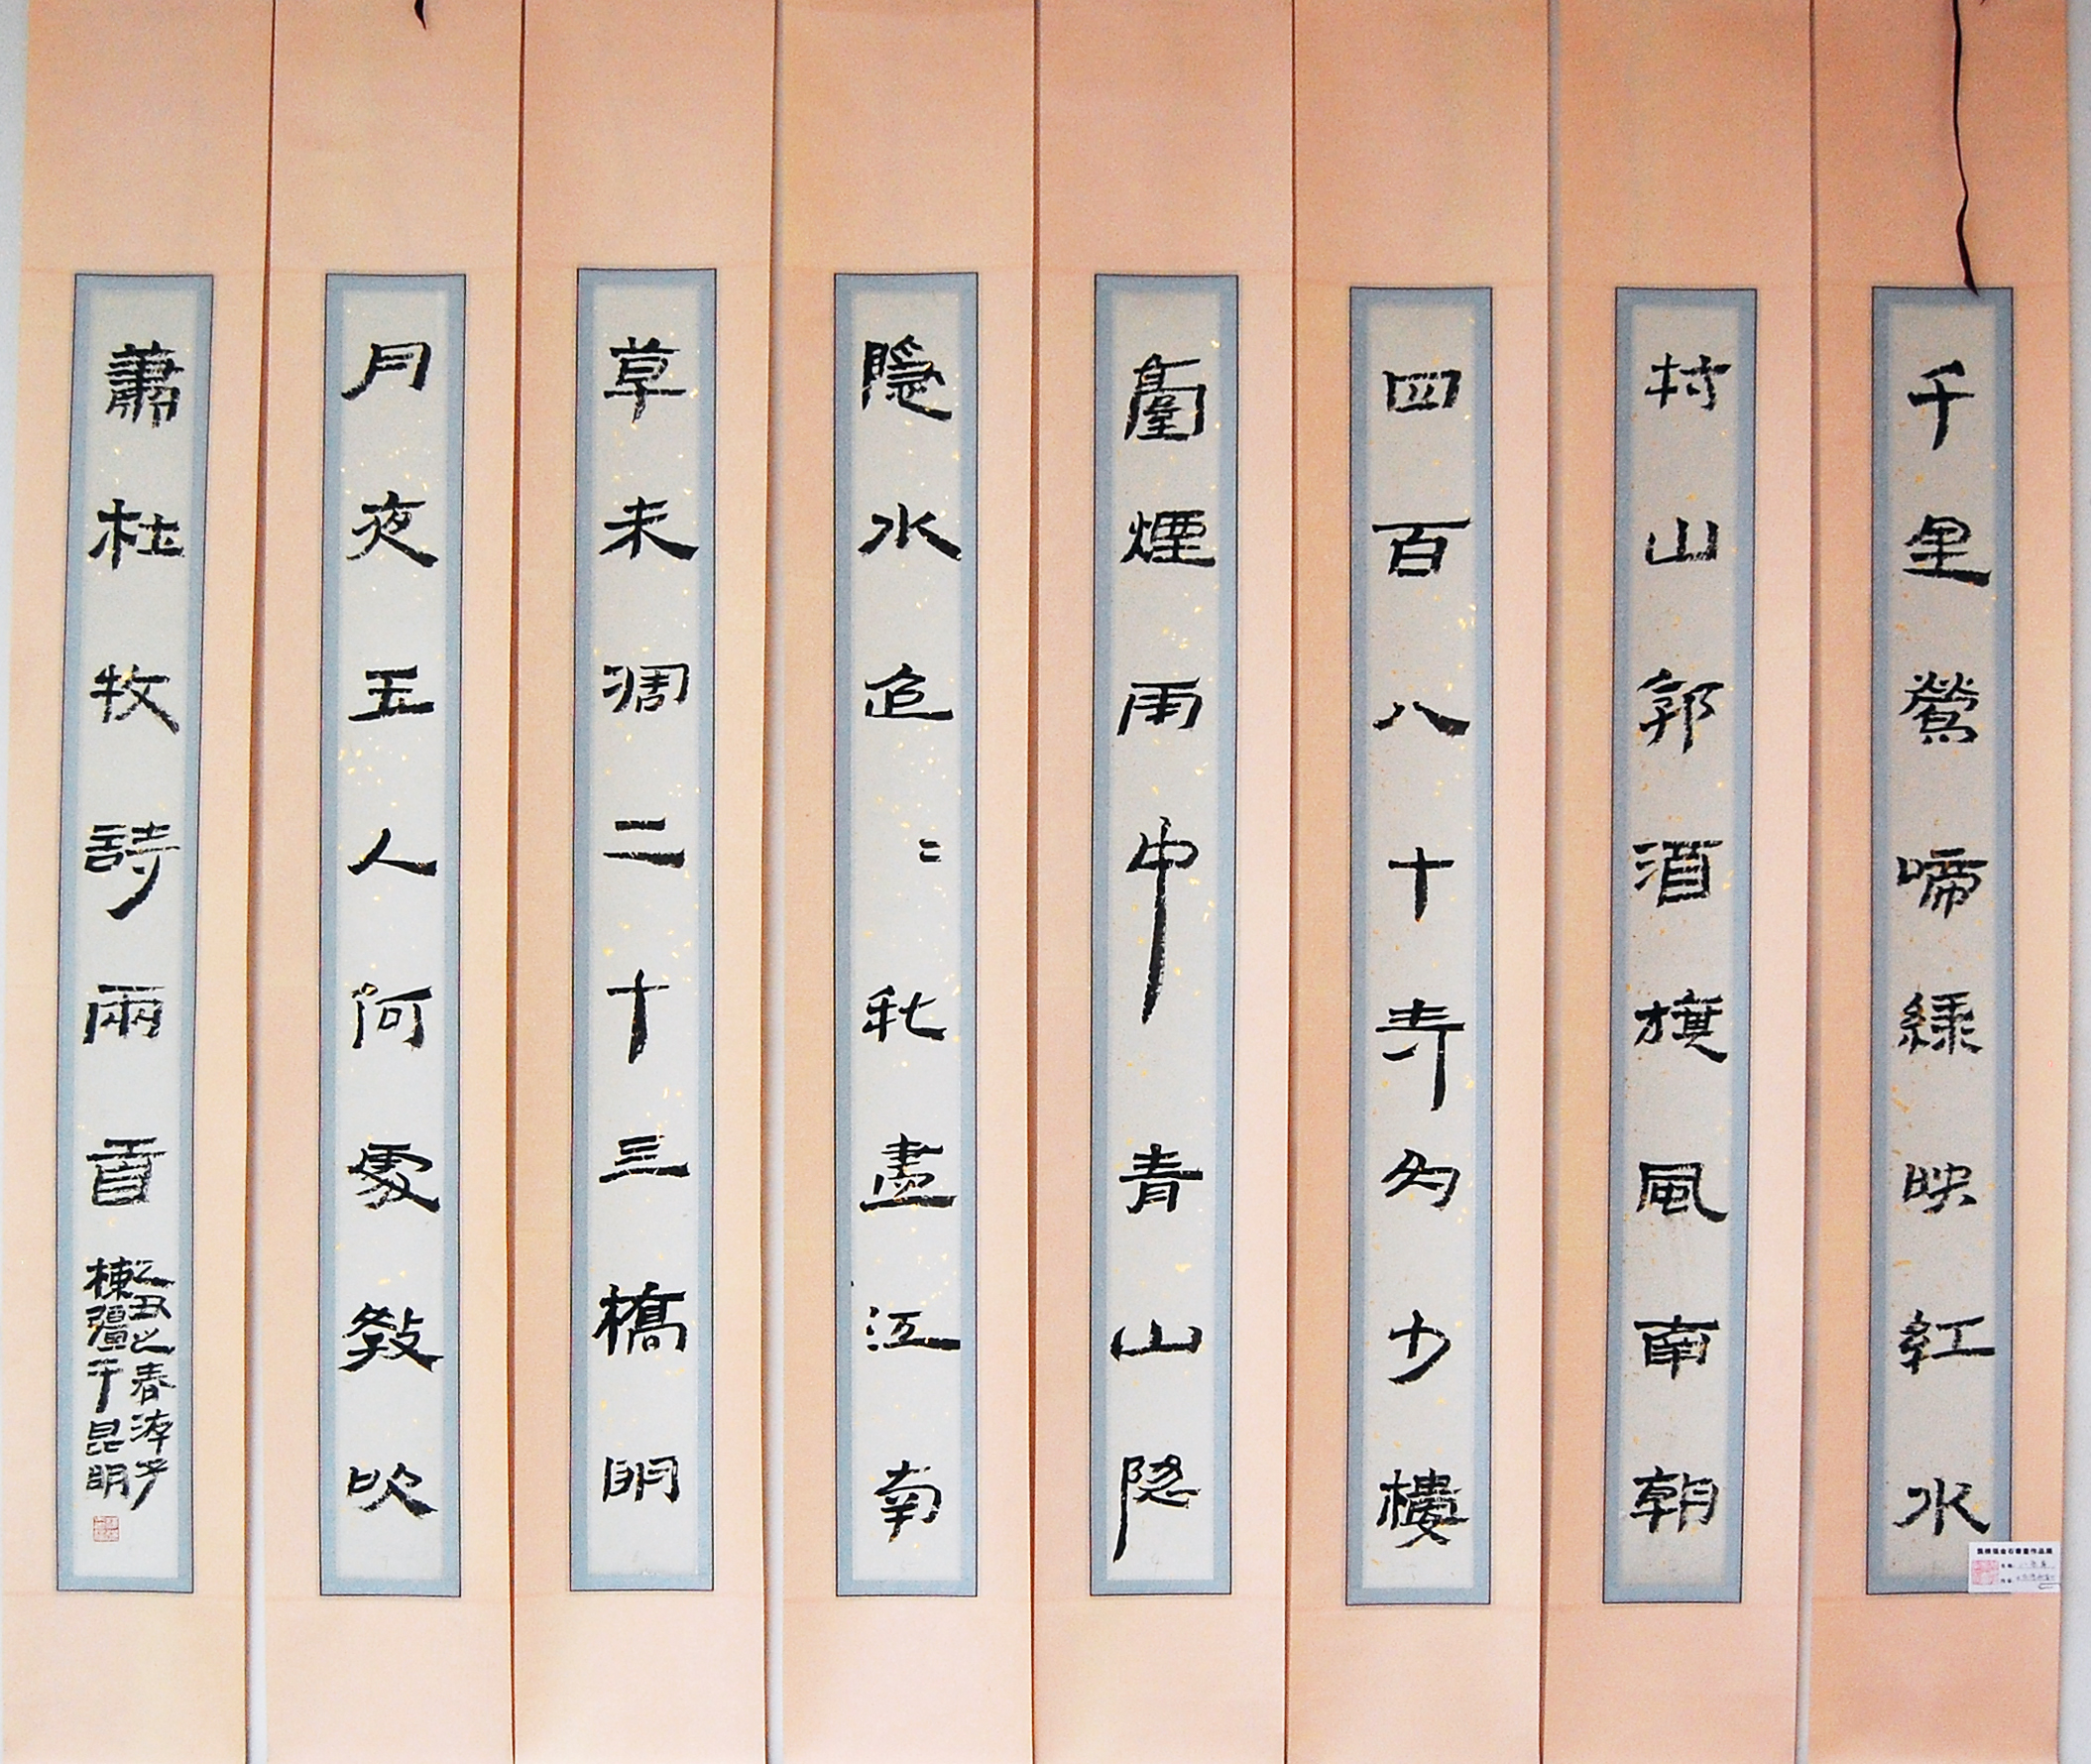 千里鶯啼綠映紅水
村山郭酒旗風南朝
四百八十寺多少樓
臺煙雨中青山隱
隱水迢〻秋盡江南
草未凋二十三橋明
月夜玉人何處敎吹
蕭杜牧詩兩首
乙丑之春游于
棟彊于昆明